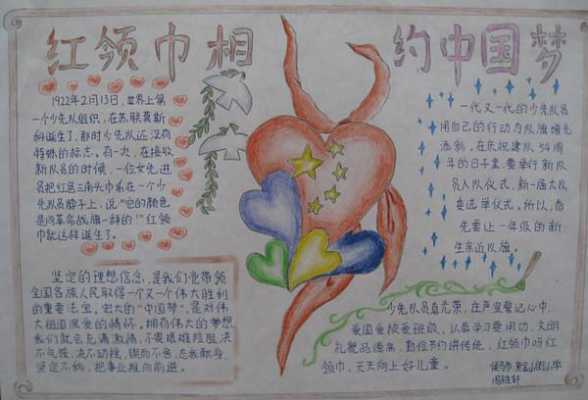 红领巾相约中国梦
1922年2月13日，世界上第
一个少先队组织，在苏联莫斯
科诞生了，那时少先队还没有
特殊的标志。有一次，在接收
新队员的时候，一位女先进
员把红色三角头巾系在一个少
先队员脖子上，说"它的颜色
是同革命战旗一样的！"红领
巾就这样诞生了。
一代又一代的少先队员
用自己的行动为队旗增光
添彩。在庆祝建队
年的日子里，要举行新队
员入队仪式，新一届大队
委选举仪式。所以，首
先要让一年级的新
生亲近队旗。
坚定的理想信念，是我们党带领
全国各族人民取得一个又一个伟大胜利
的重要法宝，宏大的"中国梦"，是对伟
大祖国深爱的情怀，拥有伟大的梦想
我们就会充满激情，不畏艰难险阻，决
不气馁，决不动摇，锲而不舍，忘我献身，
坚定不移，把事业推向前进。
少先队员真光荣，在声宣誓记心中
爱国爱校爱班级，认真学习要用功，文明
礼貌品德高，勤俭节约讲传统，红领巾呀红
领巾，天天向上好儿童。